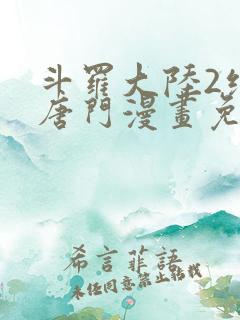 斗羅大陸2
唐門漫畫免
希言菲語
未任同意禁止转载